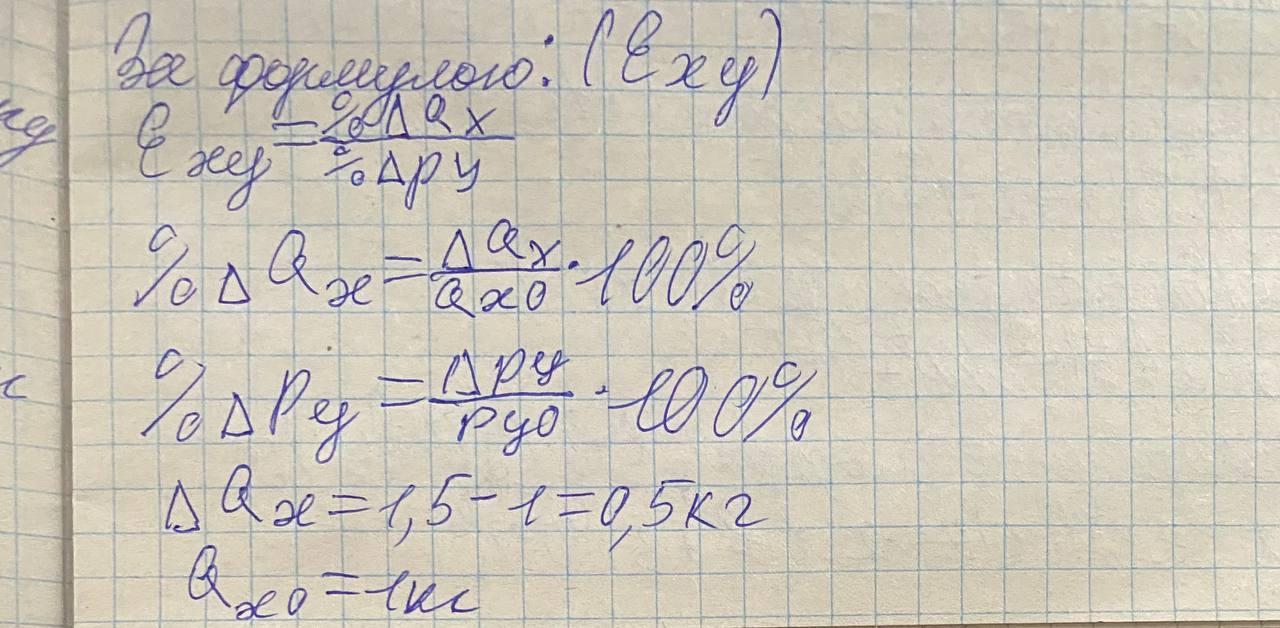 За формулою: (Exy)
Exy = %ΔQx / %Δpy
%ΔQx = ΔQx / Qx0 · 100%
%ΔPy = Δpy / py0 · 100%
ΔQx = 1,5 - 1 = 0,5 кг
Qx0 = 1 кг